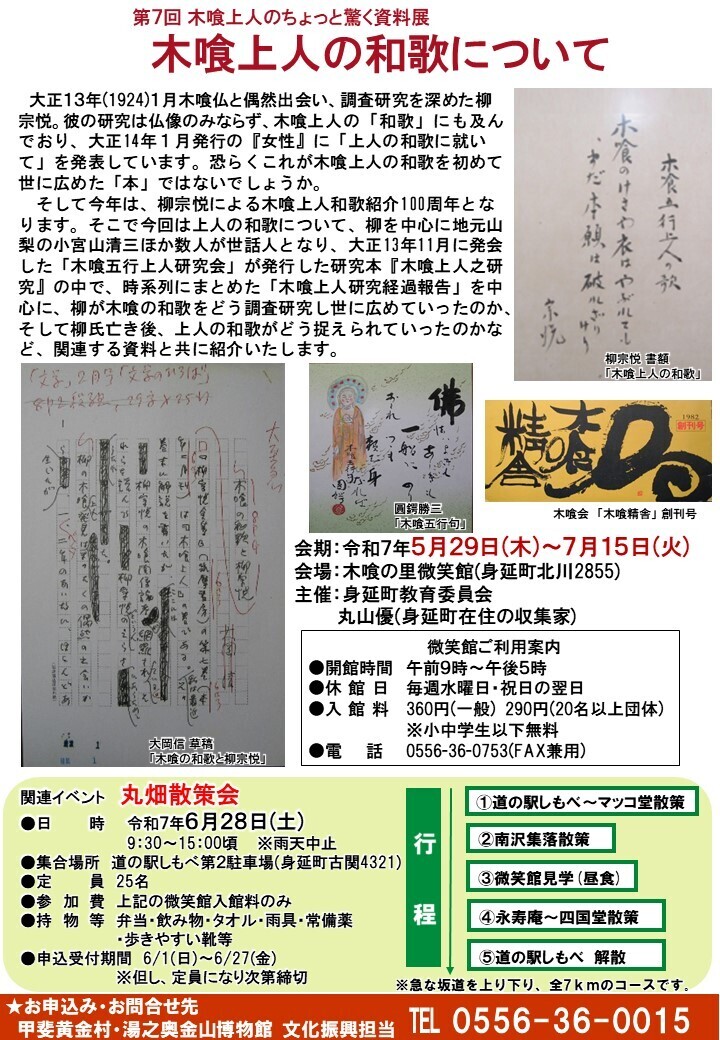 第7回 木喰上人のちょっと驚く資料展
木喰上人の和歌について
大正13年(1924)1月木喰仏と偶然出会い、調査研究を深めた柳
宗悦。彼の研究は仏像のみならず、木喰上人の「和歌」にも及ん
でおり、大正14年1月発行の『女性』に「上人の和歌に就い
て」を発表しています。恐らくこれが木喰上人の和歌を初めて
世に広めた「本」ではないでしょうか。
そして今年は、柳宗悦による木喰上人和歌紹介100周年とな
ります。そこで今回は上人の和歌について、柳を中心に地元山
梨の小宮山清三ほか数人が世話人となり、大正13年11月に発会
した「木喰五行上人研究会」が発行した研究本『木喰上人之研
究』の中で、時系列にまとめた「木喰上人研究経過報告」を中
心に、柳が木喰の和歌をどう調査研究し世に広めていったのか、
そして柳氏亡き後、上人の和歌がどう捉えられていったのかな
ど、関連する資料と共に紹介いたします。
木喰五行上人の歌
木喰のけさや衣はやぶれても
まだ本願は破れざりけり
宗悦
柳宗悦 書額
「木喰上人の和歌」
木喰の和歌と柳宗悦
大岡信
大岡信 草稿
「木喰の和歌と柳宗悦」
佛
圓鍔勝三
「木喰五行句」
木喰精舎
1982
創刊号
木喰会 「木喰精舎」創刊号
会期:令和7年5月29日(木)~7月15日(火)
会場:木喰の里微笑館(身延町北川2855)
主催:身延町教育委員会
丸山優(身延町在住の収集家)
微笑館ご利用案内
●開館時間 午前9時~午後5時
●休館日 毎週水曜日・祝日の翌日
●入館料 360円(一般) 290円(20名以上団体)
※小中学生以下無料
●電話 0556-36-0753(FAX兼用)
関連イベント 丸畑散策会
●日時 令和7年6月28日(土)
9:30~15:00頃 ※雨天中止
●集合場所 道の駅しもべ第2駐車場(身延町古関4321)
●定員 25名
●参加費 上記の微笑館入館料のみ
●持物等 弁当・飲み物・タオル・雨具・常備薬
・歩きやすい靴等
●申込受付期間 6/1(日)~6/27(金)
※但し、定員になり次第締切
行程
①道の駅しもべ~マッコ堂散策
②南沢集落散策
③微笑館見学(昼食)
④永寿庵~四国堂散策
⑤道の駅しもべ 解散
※急な坂道を上り下り、全7kmのコースです。
★お申込み・お問合せ先
甲斐黄金村・湯之奥金山博物館 文化振興担当 TEL 0556-36-0015